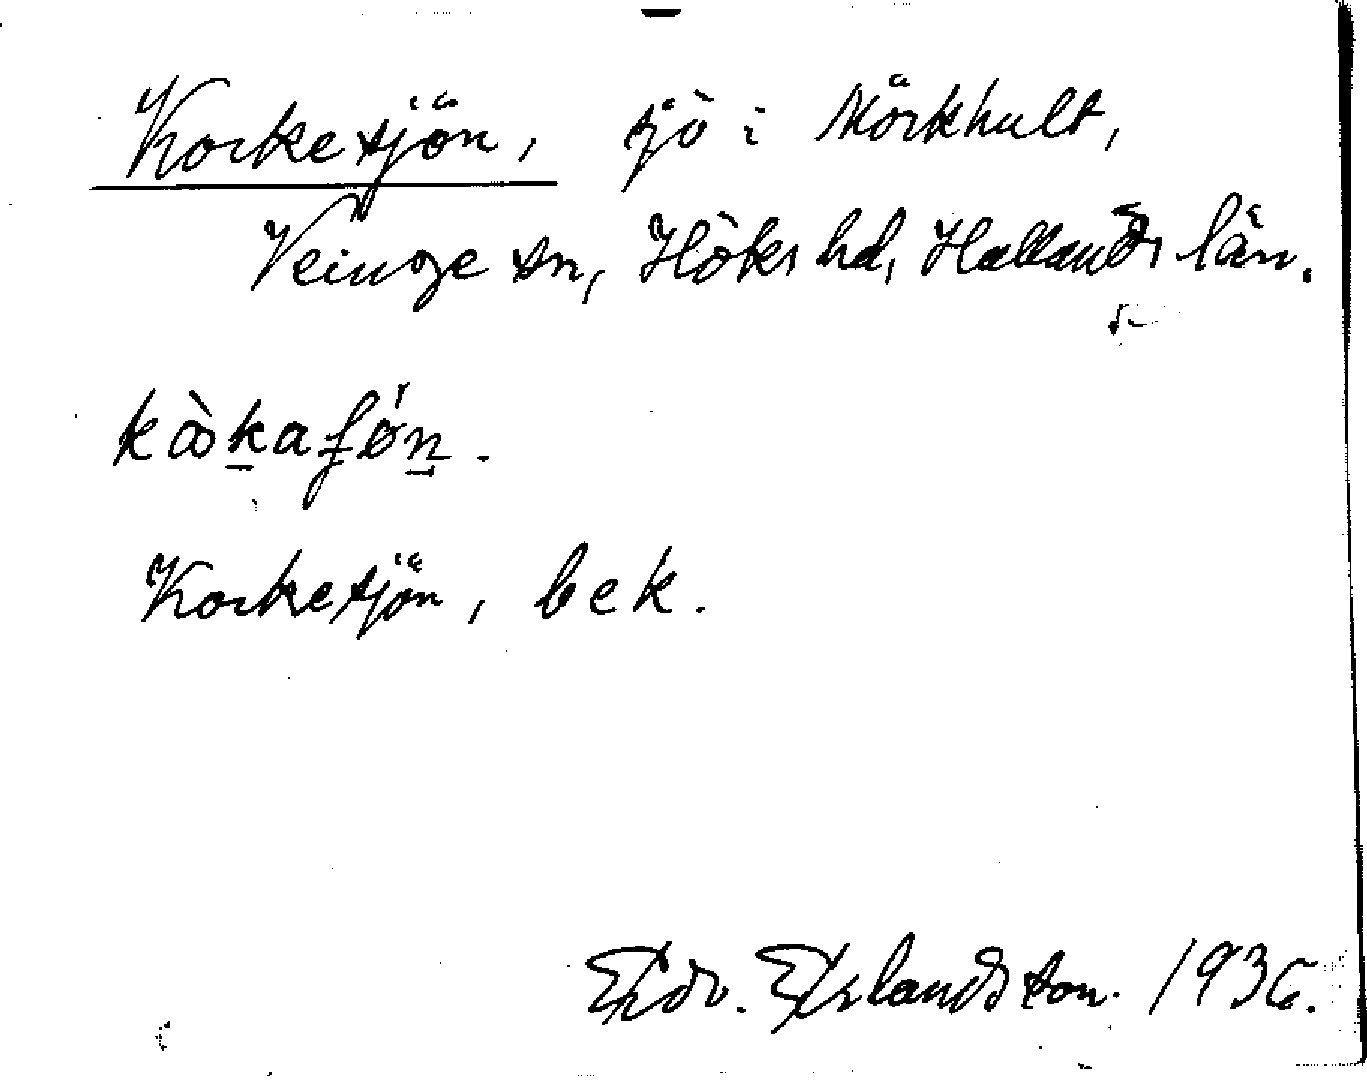 Korkesjön, sjö i Mörkhult,
Veinge sn, Höks hd, Hallands län.
kòkaʃǿn.
Korkesjön, bek.
Edv. Erlandsson. 1936.